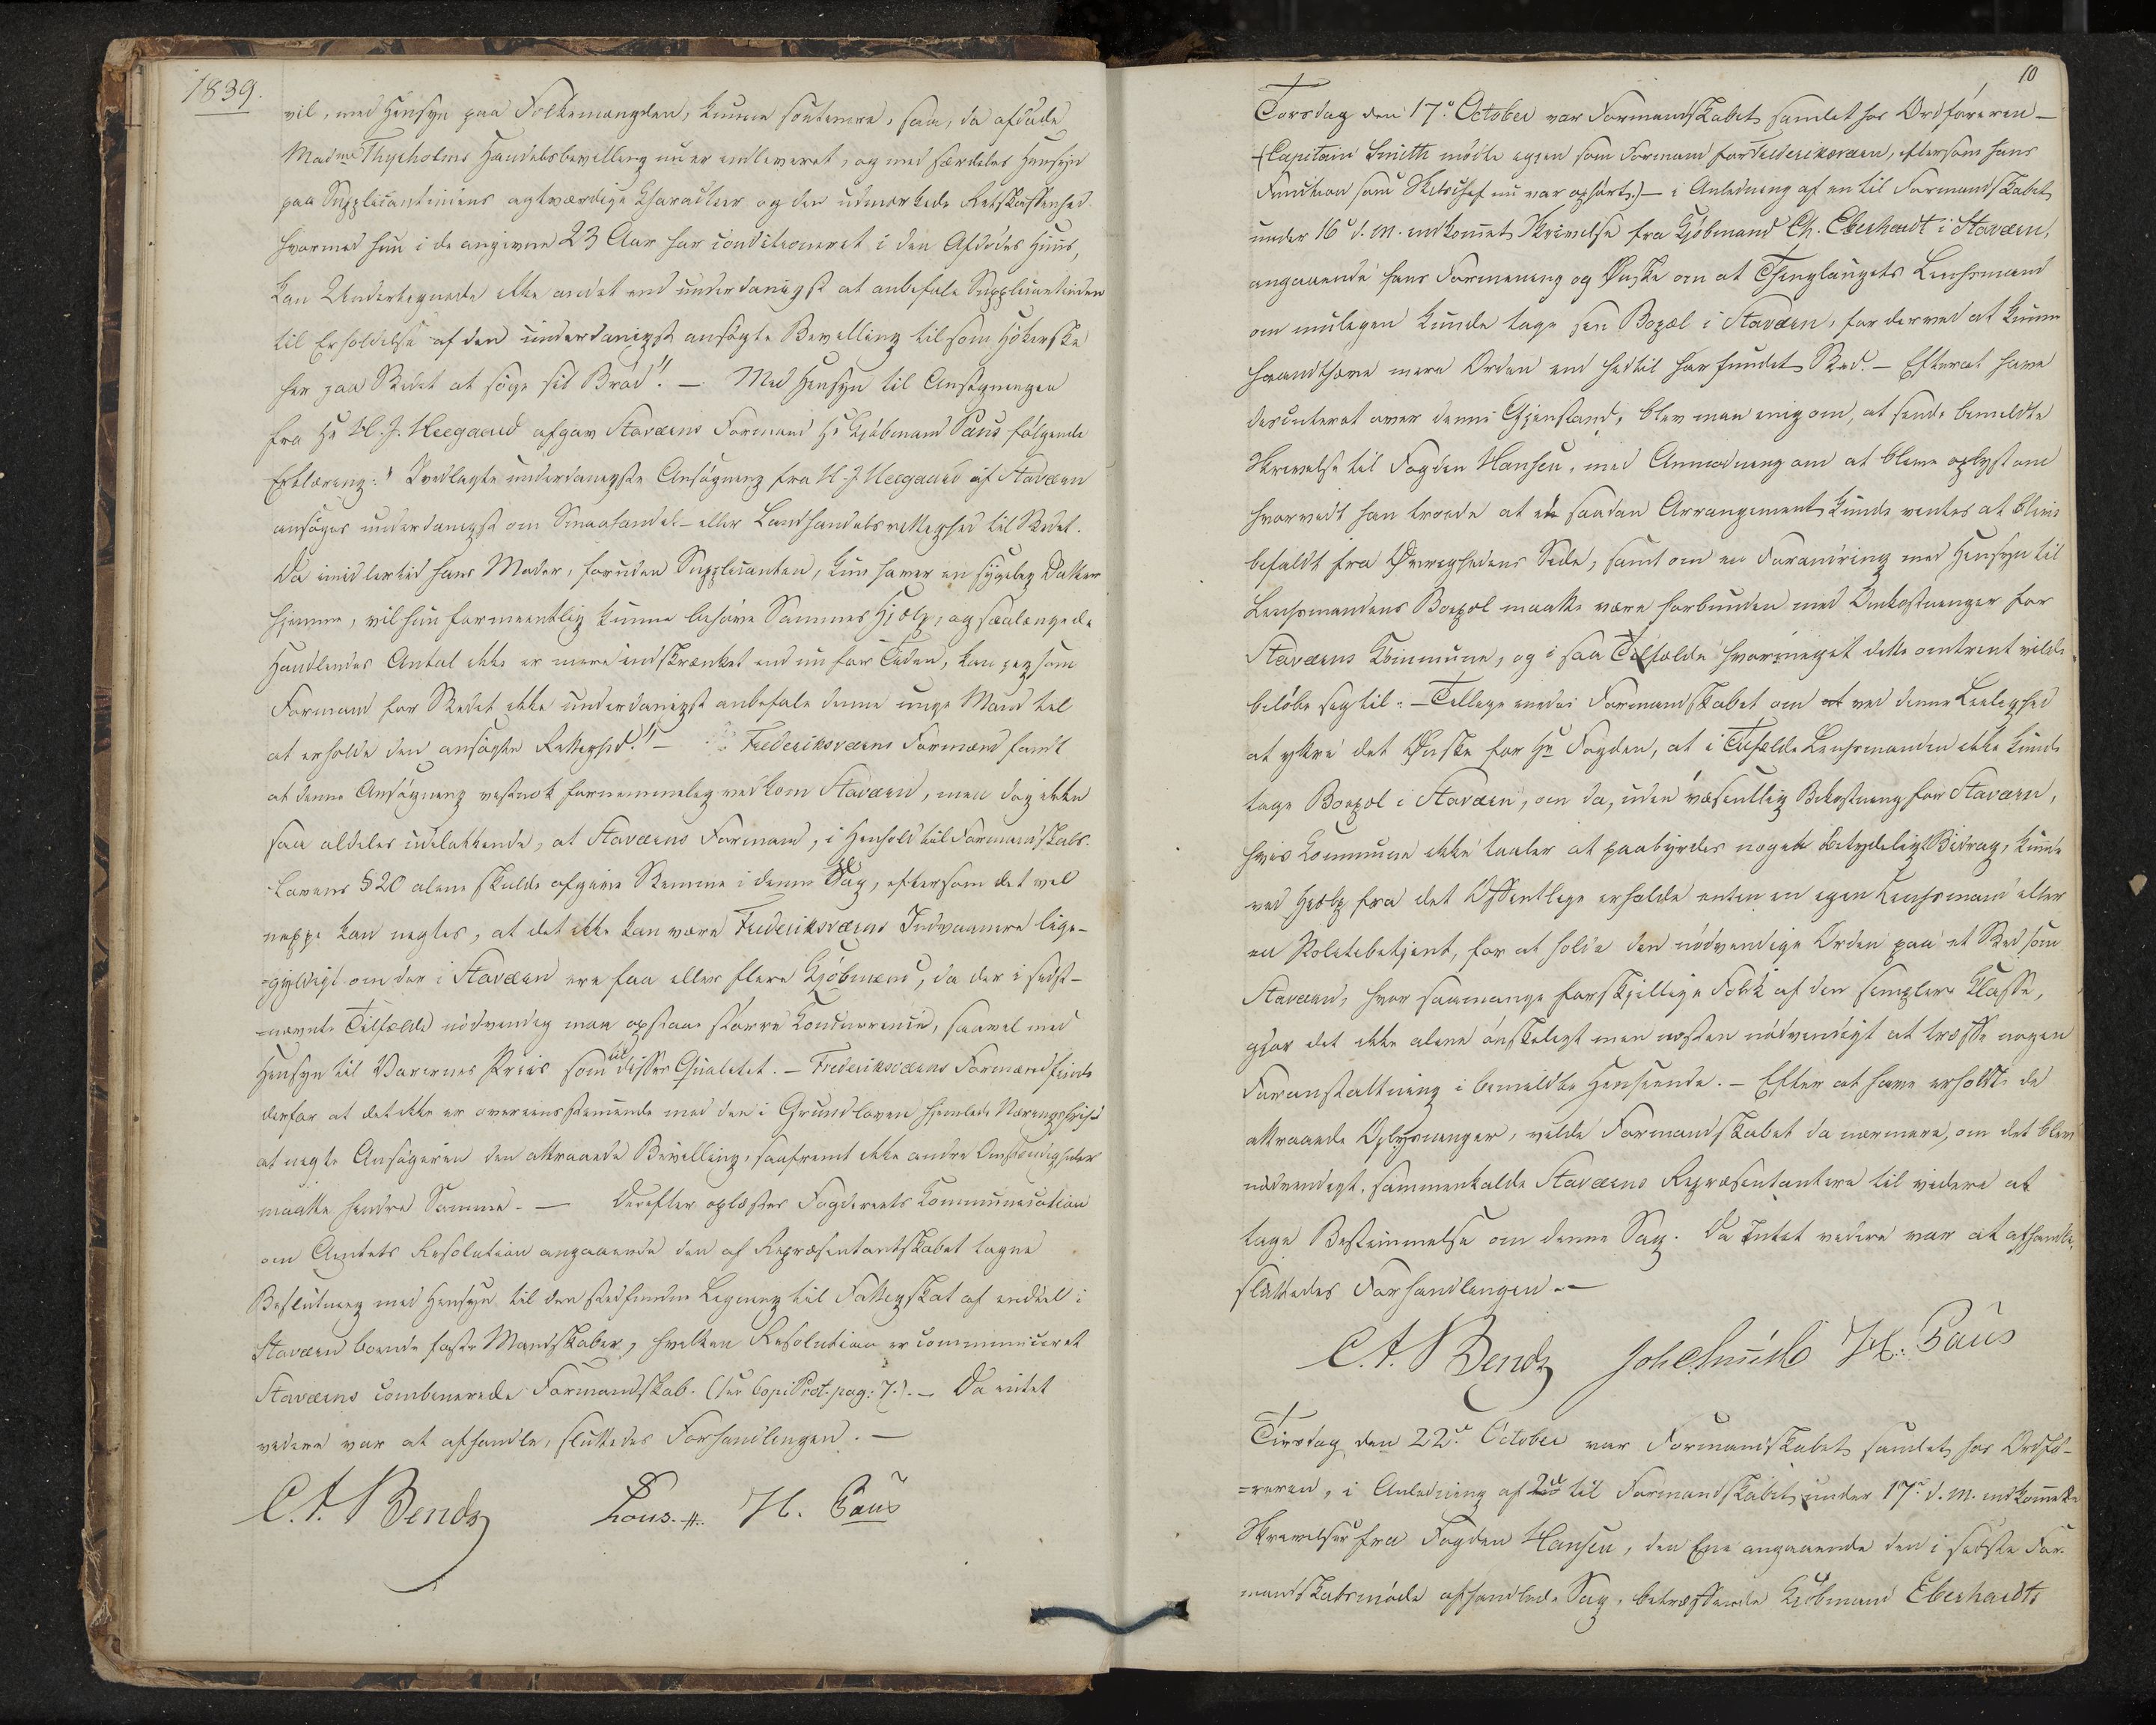 1839.
vil, med Hensyn paa Folkemængden, kunne soutenere, saa, da afdøde
Madme Thyeholms Handelsbevilling nu er indleveret, og med særdeles Hensyn
paa Supplicantindens agtværdige Characteer og den udmærkede Retskaffenhed
hvormed hun i de angivne 23 Aar har conditioneret i den Afdødes Huus,
kan Undertegnede ikke andet end underdanigst at anbefale Supplicantinden
til Erholdelse af den underdanigst ansøgte Bevilling til som Høkerske
her paa Stedet at søge sit Brød". — Med Hensyn til Ansøgningen
fra Hr H. J. Heegaard afgav Staværns Formand Hr Kjøbmand Paus følgende
Erklæring: "Vedlagte underdanigste Ansøgning fra H. J. Heegaard af Staværn
ansøges underdanigst om Smaahandel- eller Landhandelsrettighed til Stedet.
Da imidlertid hans Moder, foruden Supplicanten, kun haver en sygelig Datter
hjemme, vil hun formeentlig kunne behøve Sammes Hjelp, og saalænge de
Handlendes Antal ikke er mere indskrænket end nu for Tiden, kan jeg som
Formand for Stedet ikke underdanigst anbefale denne unge Mand til
at erholde den ansøgte Rettighed." — Frederiksværns Formænd fandt
at denne Ansøgning vestnok fornemmelig vedkom Staværn, men dog ikke
saa aldeles udelukkende, at Staværns Formand, i Henhold til Formandskabs-
Lovens § 20 alene skulde afgive Stemme i denne Sag, eftersom det vel
neppe kan negtes, at det ikke kan være Frederiksværns Indvaanere lige-
=gyldigt om der i Staværn ere faa eller flere Kjøbmænd, da der i sidst-
=nævnte Tilfælde nødvendig maa opstaae større Konkurrence, saavel med
Hensyn til Varernes Priis som til disses Qualitet. — Frederiksværns Formænd finde
derfor at det ikke er overeensstemmende med den i Grundloven hjemlede Næringsfrihed
at negte Ansøgeren den attraaede Bevilling, saafremt ikke andre Omstændigheder
maatte hindre Samme. — Derefter oplæstes Fogderiets Kommunication
om Amtets Resolution angaaende den af Repræsentantskabet tagne
Beslutning med Hensyn til den stedfundne Ligning til Fattigskat af endeel i
Staværn boende faste Mandskaber, hvilken Resolution er communiceret
Staværns combinerede Formandskab. (See Copi Prot. pag: 7.). — Da intet
videre var at afhandle, sluttedes Forhandlingen. —
C. A. Bendz H. Paus
10
Torsdag den 17de October var Formandskabet samlet hos Ordføreren —
(Capitain Smith mødte igjen som Formand for Frederiksværn, eftersom hans
Function som Skibschef nu var ophørt.) — i Anledning af en til Formandskabet
under 16de d. M. indkommet Skrivelse fra Kjøbmand Ch. Eberhardt i Staværn,
angaaende hans Formening og Ønske om at Thinglaugets Lensmand
om muligen kunde tage sin Bopæl i Staværn, for derved at kunne
haandhæve mere Orden end hidtil har fundet Sted. — Efterat have
discuteret over denne Gjenstand, blev man enig om, at sende bemeldte
Skrivelse til Fogden Hansen, med Anmodning om at blive oplyst om
hvorvidt han troede at et saadan Arrangement kunde ventes at blive
befaldt fra Øvrighedens Side, samt om en Forandring med Hensyn til
Lensmandens Bopæl maatte være forbunden med Omkostninger for
Staværns Kommune, og i saa Tilfælde hvormeget dette omtrent vilde
beløbe sig til. — Tillige enedes Formandskabet om at ved denne Leilighed
at yttre det Ønske for Hr Fogden, at i Tilfælde Lensmanden ikke kunde
tage Bopæl i Staværn, om da, uden væsentlig Bekostning for Staværn,
hvis Kommune ikke taaler at paabyrdes noget betydeligt Bidrag, kunde
ved Hielp fra det Offentlige erholde enten en egen Lensmand eller
en Politiebetjent, for at holde den nødvendige Orden paa et Sted som
Staværn, hvor saamange forskjellige Folk af den simplere Klasse,
gjør det ikke alene ønskeligt men næsten nødvendigt at træffe nogen
Foranstaltning i bemeldte Henseende. — Efter at have erholdt de
attraaede Oplysninger, vilde Formandskabet da nærmere, om det blev
nødvendigt, sammenkalde Staværns Repræsentantere til videre at
tage Bestemmelse om denne Sag. Da Intet videre var at afhandle,
sluttedes Forhandlingen. —
C. A. Bendz Joh Smith H. Paus
Tirsdag den 22de October var Formandskabet samlet hos Ordfø-
=reren, i Anledning af 2de til Formandskabet under 17de d. M. indkomne
Skrivelser fra Fogden Hansen, den Ene angaaende den i sidste For-
mandskabsmøde afhandlede Sag, betræffende Kjøbmand Eberhardts